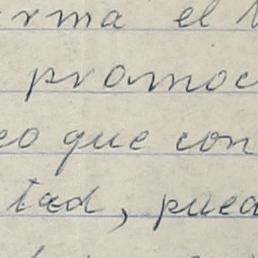 rma el
promoc
eo que con
tad, pued